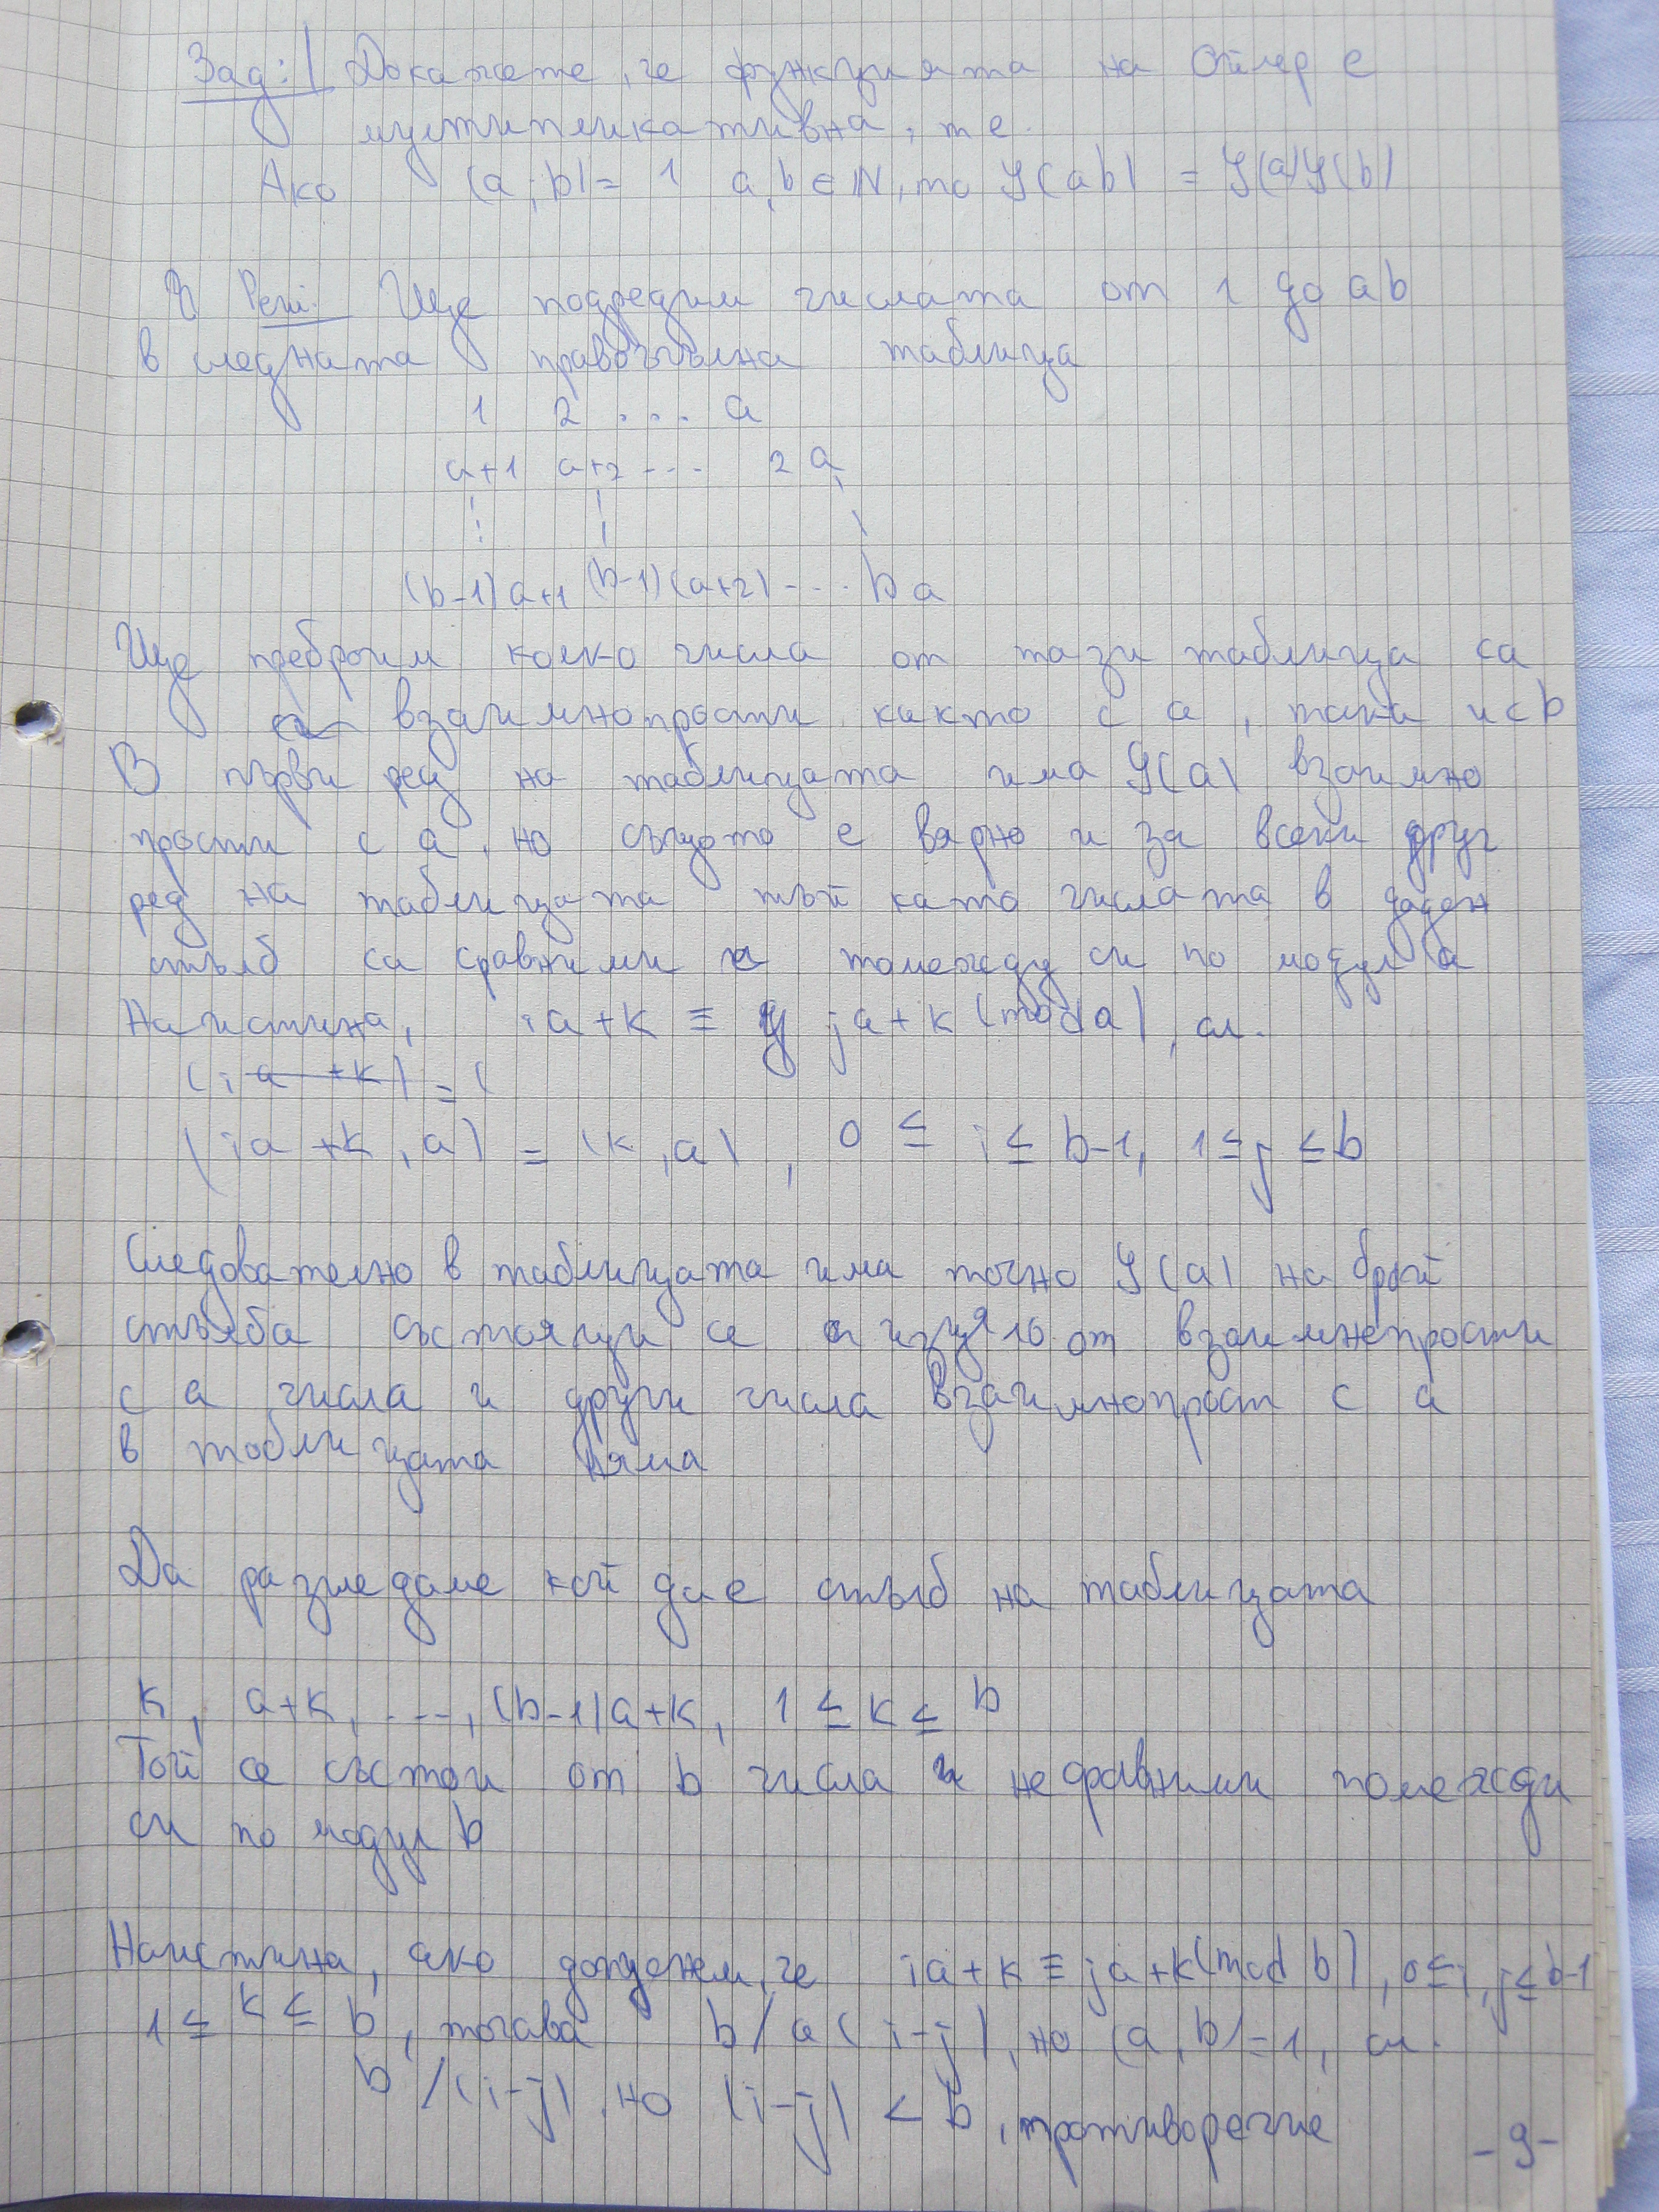 Зад:1 Докажете, че функцията на Ойлер е
мултипликативна, т е.
Ако (a, b) = 1 a, b ∈ N, то φ(ab) = φ(a)φ(b)
Реш: Ще подредим числата от 1 до ab
в следната правоъгълна таблица
1 2 ... a
a+1 a+2 ... 2a
(b-1)a+1 (b-1)(a+2) ... ba
Ще преброим колко числа от тази таблица са
взаимнопрости както с a, така и с b
В първи ред на таблицата има φ(a) взаимно
прости с a, но същото е вярно и за всеки друг
ред на таблицата тъй като числата в даден
стълб са сравними помежду си по модул a
Наистина, ia+k ≡ ja+k (mod a), сл.
(ia +k) = (
(ia +k, a) = (k, a), 0 ≤ i ≤ b-1, 1 ≤ j ≤ b
Следователно в таблицата има точно φ(a) на брой
стълба състоящи се изцяло от взаимнопрости
с a числа и други числа взаимнопрост с a
в таблицата няма
Да разгледаме кой да е стълб на таблицата
k, a+k, ..., (b-1)a+k, 1 ≤ k ≤ b
Той се състои от b числа несравними помежди
си по модул b
Наистина, ако допуснем, че ia+k ≡ ja+k (mod b), 0 ≤ i, j ≤ b-1
1 ≤ k ≤ b, тогава b/a(i-j), но (a, b) = 1, сл.
b/(i-j), но |i-j| < b, противоречие
-9-